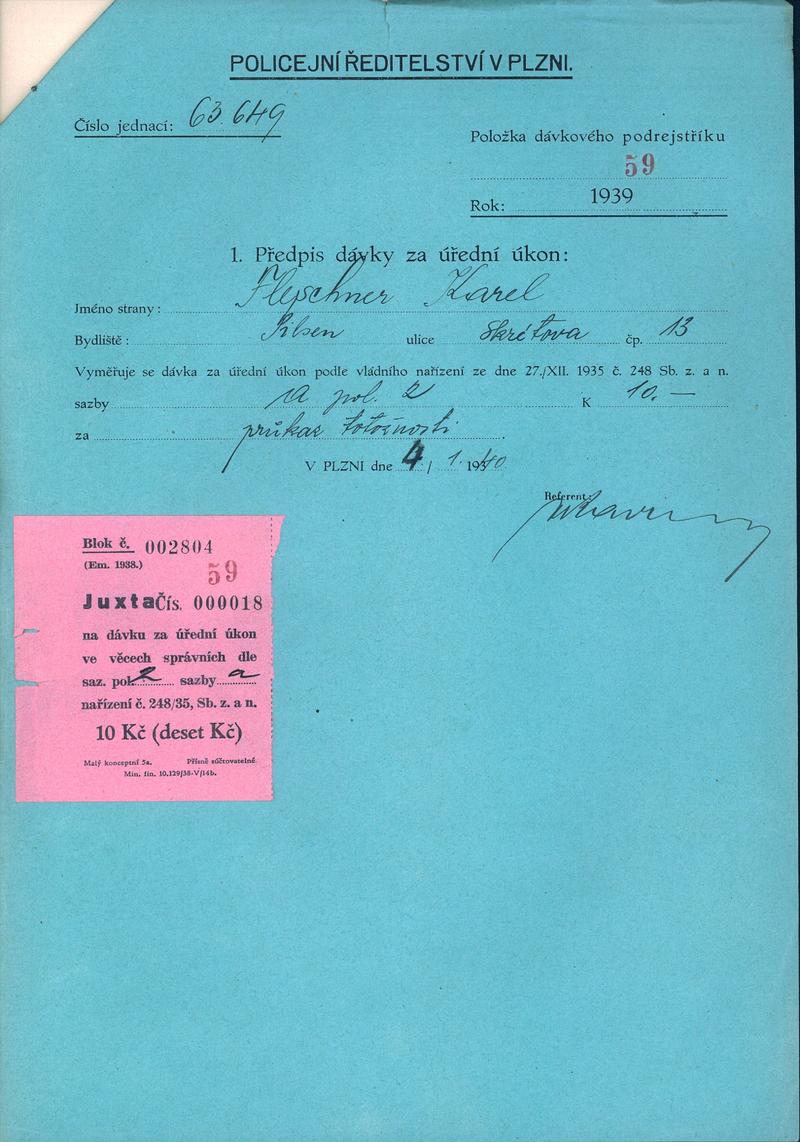 POLICEJNÍ ŘEDITELSTVÍ V PLZNI.
Číslo jednací: 63.649
Položka dávkového podrejstříku
59
Rok: 1939
1. Předpis dávky za úřední úkon:
Jméno strany: Fleischner Karel
Bydliště: Pilsen ulice Skrétova čp. 13
Vyměřuje se dávka za úřední úkon podle vládního nařízení ze dne 27./XII. 1935 č. 248 Sb. z. a n.
sazby A pol. 2 K 10.—
za průkaz totožnosti.
V PLZNI dne 4 / 1. 1940
Referent:
Blok č. 002804
(Em. 1938.)
59
Juxta Čís. 000018
na dávku za úřední úkon
ve věcech správních dle
saz. pol. 2 sazby a
nařízení č. 248/35, Sb. z. a n.
10 Kč (deset Kč)
Malý konceptní 5a. Přísně súčtovatelné.
Min. fin. 10.129/38-V/14b.